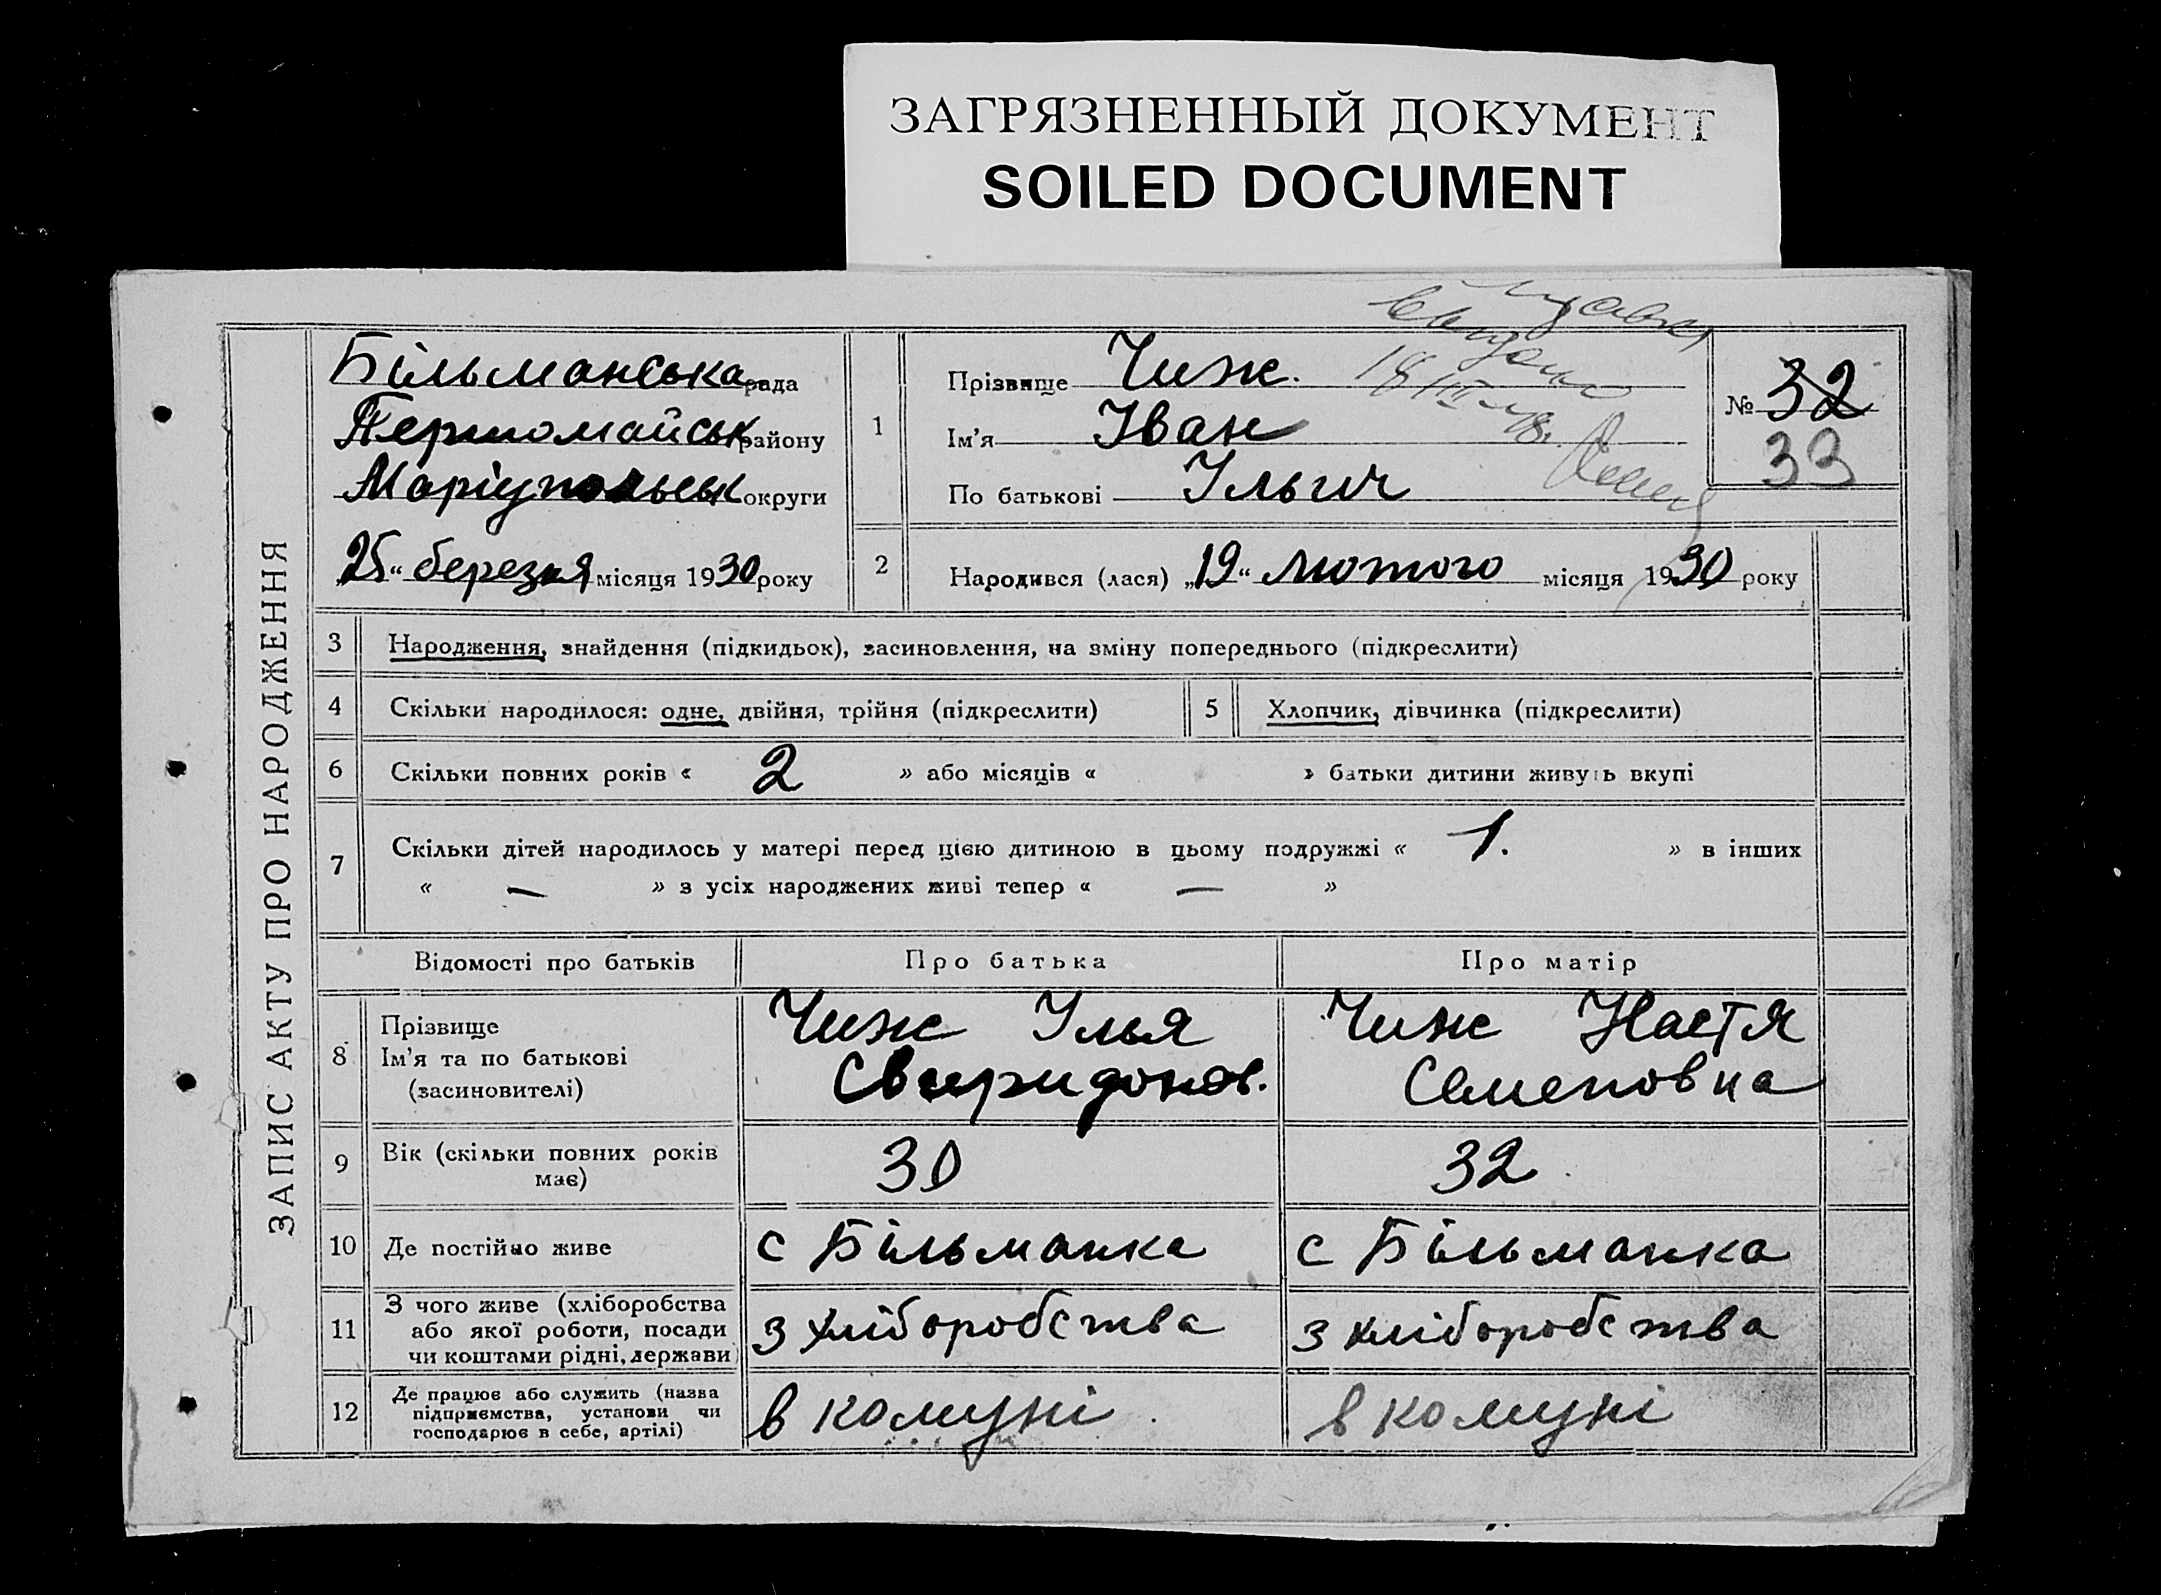 ЗАГРЯЗНЕННЫЙ ДОКУМЕНТ
SOILED DOCUMENT
ЗАПИС АКТУ ПРО НАРОДЖЕННЯ
Більманська рада
Першомайськ району
Маріупольськ округи
„25“ березня місяця 1930 року
1
Прізвище Чиж.
Ім'я Іван
По батькові Ільич
18 III
№ 32
33
2
Народився (лася) „19“ лютого місяця 1930 року
3 Народження, знайдення (підкидьок), засиновлення, на зміну попереднього (підкреслити)
4 Скільки народилося: одне, двійня, трійня (підкреслити) 5 Хлопчик, дівчинка (підкреслити)
6 Скільки повних років « 2 » або місяців « » батьки дитини живуть вкупі
7 Скільки дітей народилось у матері перед цією дитиною в цьому подружжі « 1. » в інших
« — » з усіх народжених живі тепер « — »
Відомості про батьків Про батька Про матір
8 Прізвище
Ім'я та по батькові
(засиновителі)
Чиж Ілья
Свиридонов.
Чиж Настя
Семеновна
9 Вік (скільки повних років
має)
30 32
10 Де постійно живе с Більманка с Більманка
11 З чого живе (хліборобства
або якої роботи, посади
чи коштами рідні, держави)
з хліборобства з хліборобства
12 Де працює або служить (назва
підприємства, установи чи
господарює в себе, артілі)
в комуні в комуні